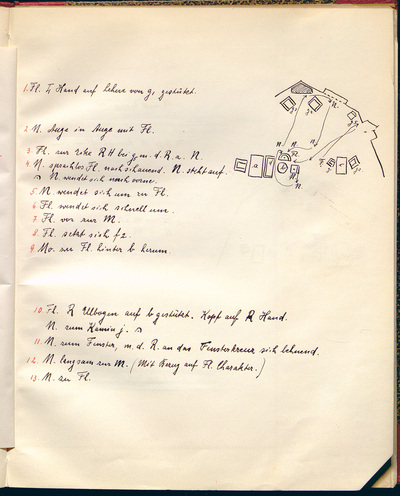 1. Fl. L Hand auf Lehne von g, gestützt.
2. N. Auge in Auge mit Fl.
3. Fl. zur Ecke R H bei g m. d. R. a. N.
4. N. sprachlos Fl. nachschauend. N. steht auf.
N. wendet sich nach vorne.
5. N. wendet sich um zu Fl.
6. Fl. wendet sich schnell um.
7. Fl. vor zur M.
8. Fl. setzt sich f 2.
9. Mo. zu Fl. hinter b herum.
10. Fl. R Ellbogen auf b gestützt. Kopf auf R Hand.
N. zum Kamin j.
11. N. zum Fenster, m. d. R. an das Fensterkreuz sich lehnend.
12. N. langsam zur M. (Mit Bezug auf Fl. Charakter.)
13. N. zu Fl.